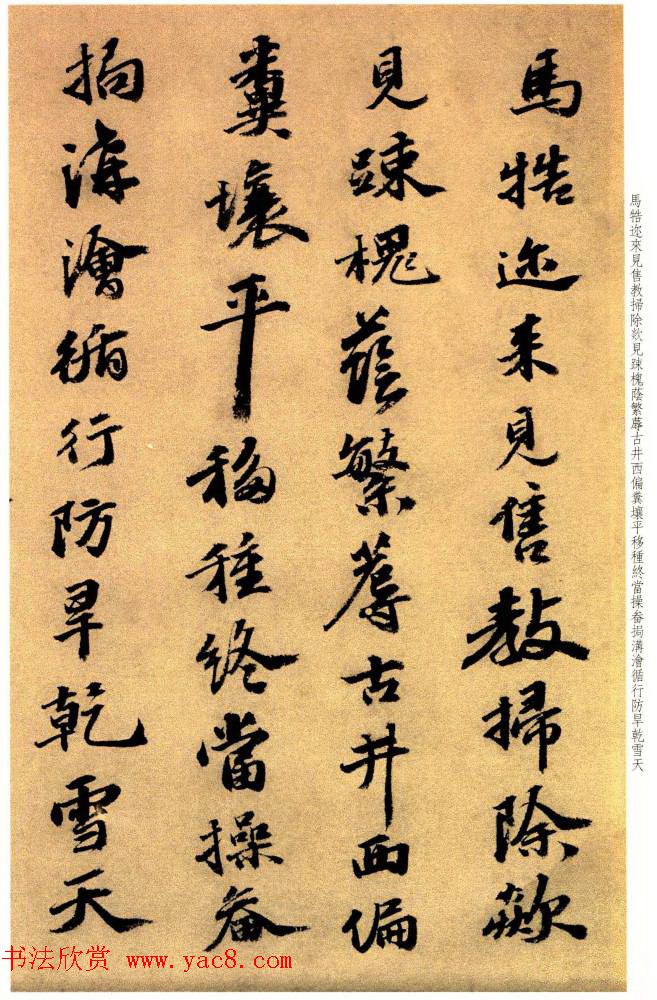 馬牿迩来見售教掃除欻
見踈槐蔭繁蓐古井西偏
糞壤平移種終當操畚
挶溝澮循行防旱乾雪天
馬牿迩來見售教掃除欻見踈槐蔭繁蓐古井西偏糞壤平移種終當操畚挶溝澮循行防旱乾雪天
书法欣赏 www.yac8.com